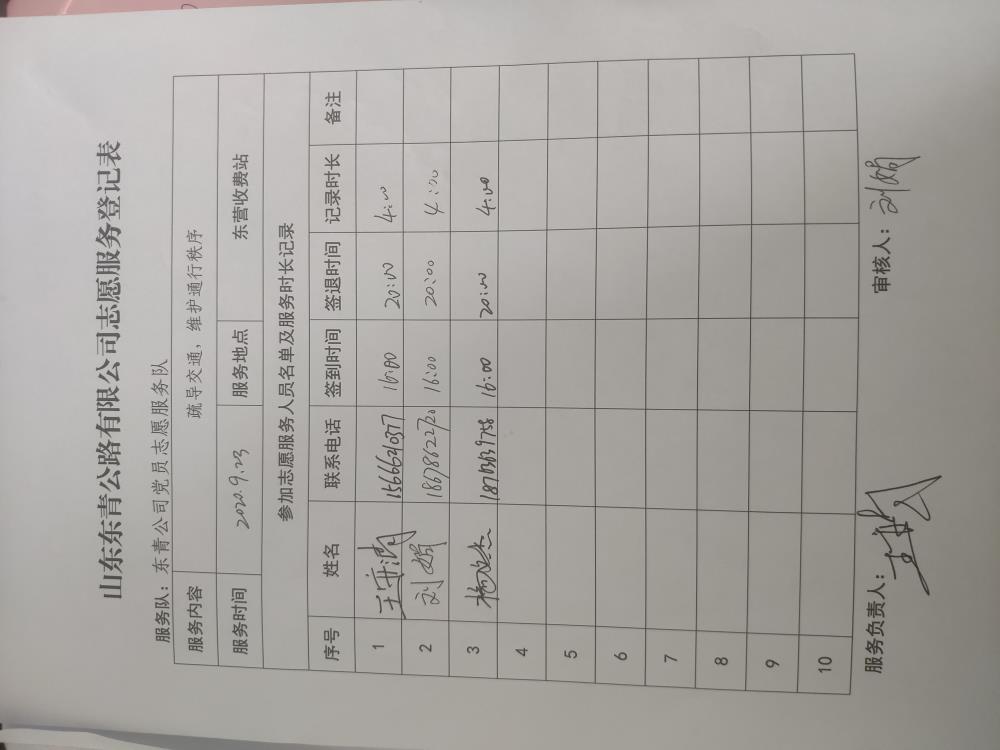 山东东青公路有限公司志愿服务登记表
服务队：东青公司党员志愿服务队
服务内容 疏导交通，维护通行秩序
服务时间 2020.9.23 服务地点 东营收费站
参加志愿服务人员名单及服务时长记录
序号 姓名 联系电话 签到时间 签退时间 记录时长 备注
1 15666240377 16:00 20:00 4:00
2 刘娟 18678622720 16:00 20:00 4:00
3 16:00 20:00 4:00
4
5
6
7
8
9
10
服务负责人： 审核人：刘娟